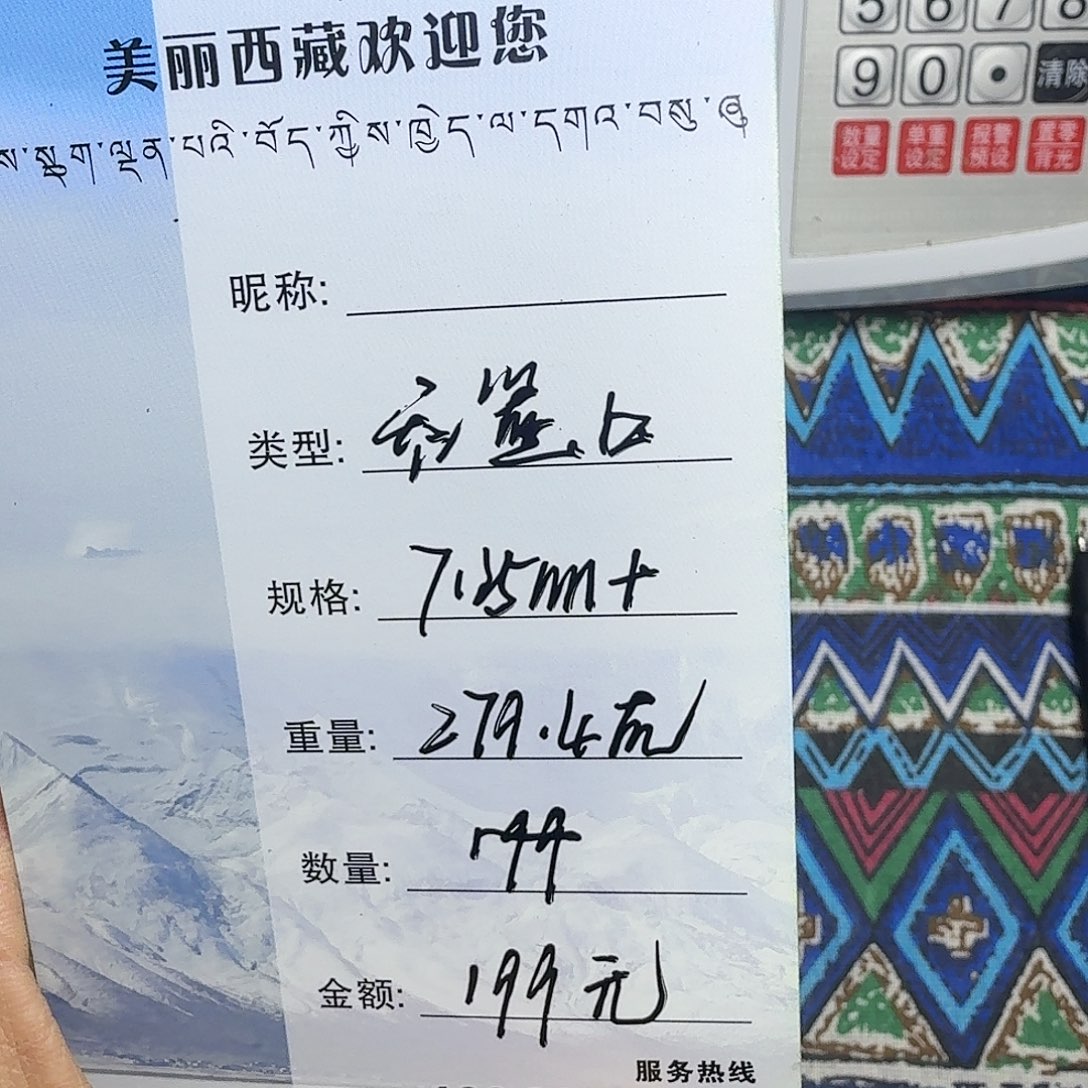 美丽西藏欢迎您
ས་སྡུག་ལྡན་པའི་བོད་ཀྱིས་ཁྱེད་ལ་དགའ་བསུ་ཞུ
昵称:
类型:
规格: 7.25mm+
重量: 279.4克
数量:
金额: 199元
服务热线
5 6 7 8
9 0 • 清除
数量设定 单重设定 报警预设 置零背光